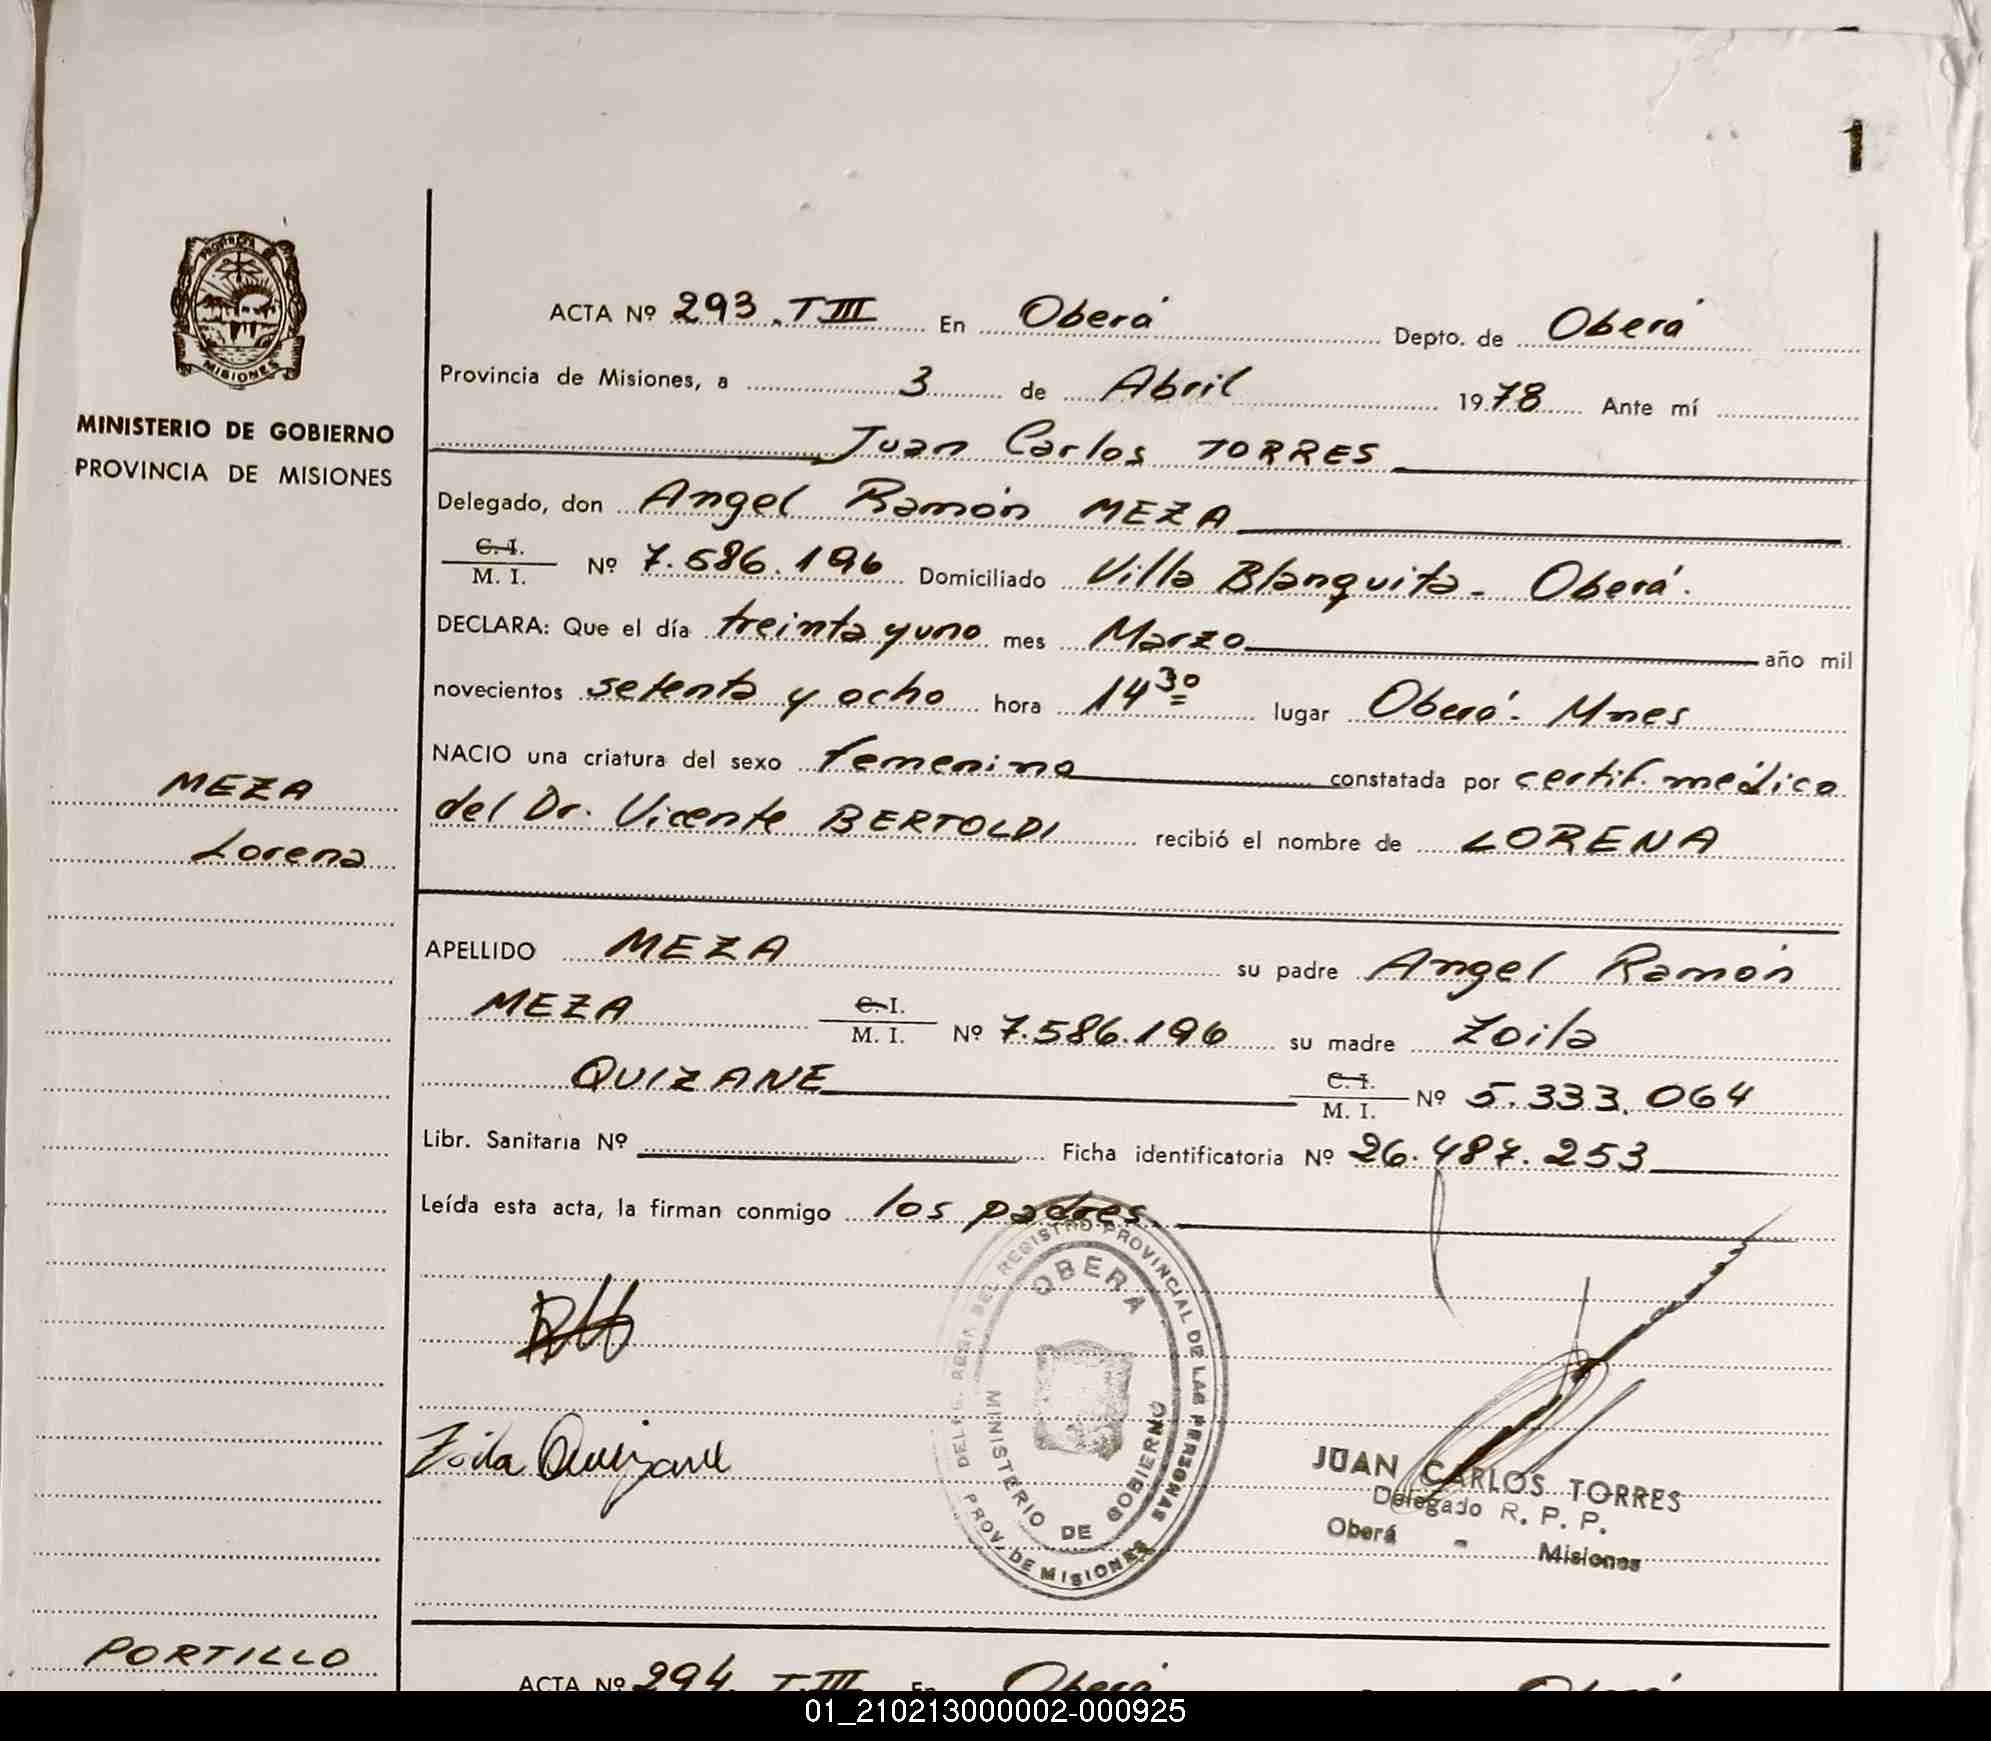 1
PROVINCIA
MISIONES
MINISTERIO DE GOBIERNO
PROVINCIA DE MISIONES
MEZA
Lorena
ACTA Nº 293. T III En Oberá Depto. de Oberá
Provincia de Misiones, a 3 de Abril 1978 Ante mí
Juan Carlos TORRES
Delegado, don Angel Ramón MEZA
C. I.
M. I. Nº 7.586.196 Domiciliado Villa Blanquita - Oberá.
DECLARA: Que el día treinta y uno mes Marzo año mil
novecientos setenta y ocho hora 14 30 lugar Oberá - Mnes
NACIO una criatura del sexo femenino constatada por certif. médico
del Dr. Vicente BERTOLDI recibió el nombre de LORENA
APELLIDO MEZA su padre Angel Ramón
MEZA C. I. M. I. Nº 7.586.196 su madre Zoila
QUIZANE C. I. M. I. Nº 5.333.064
Libr. Sanitaria Nº Ficha identificatoria Nº 26.487.253
Leída esta acta, la firman conmigo los padres.
REGISTRO PROVINCIAL DE LAS PERSONAS
OBERA
MINISTERIO DE GOBIERNO
PROV. DE MISIONES
Zoila Quizane
JUAN CARLOS TORRES
Delegado R. P. P.
Oberá - Misiones
PORTILLO
ACTA Nº 294. T.III En Oberá Oberá
01_210213000002-000925